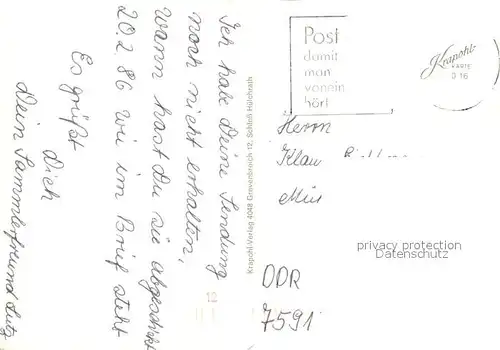 Ich habe Deine Sendung
noch nicht erhalten,
wann hast Du sie abgeschickt
20.2 86 wie im Brief steht
Es grüßt
Dich
Dein Sammlerfreund Lutz
12
Krapohl-Verlag 4048 Grevenbroich 12, Schloß Hülchrath
Post
damit
man
vonein
hört
Krapohl-
KARTE
Herrn
Klau
DDR
7591
privacy protection
Datenschutz